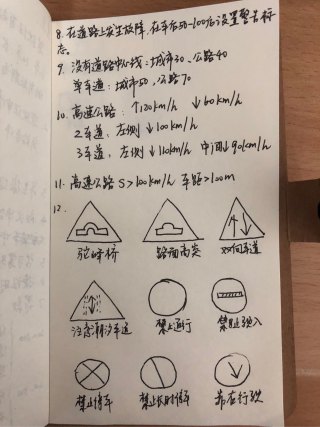 8. 在道路上发生故障,在车后50-100m设置警告标
志。
9. 没有道路中心线:城市30、公路40
单车道:城市50,公路70
10. 高速公路:↑120km/h ↓60km/h
2车道,左侧↓100km/h
3车道,左侧↓110km/h 中间↓90km/h
11. 高速公路 S>100km/h 车距>100m
12.
驼峰桥 路面高突 双向车道
注意潮汐车道 禁止通行 禁止驶入
禁止停车 禁止长时停车 靠右行驶